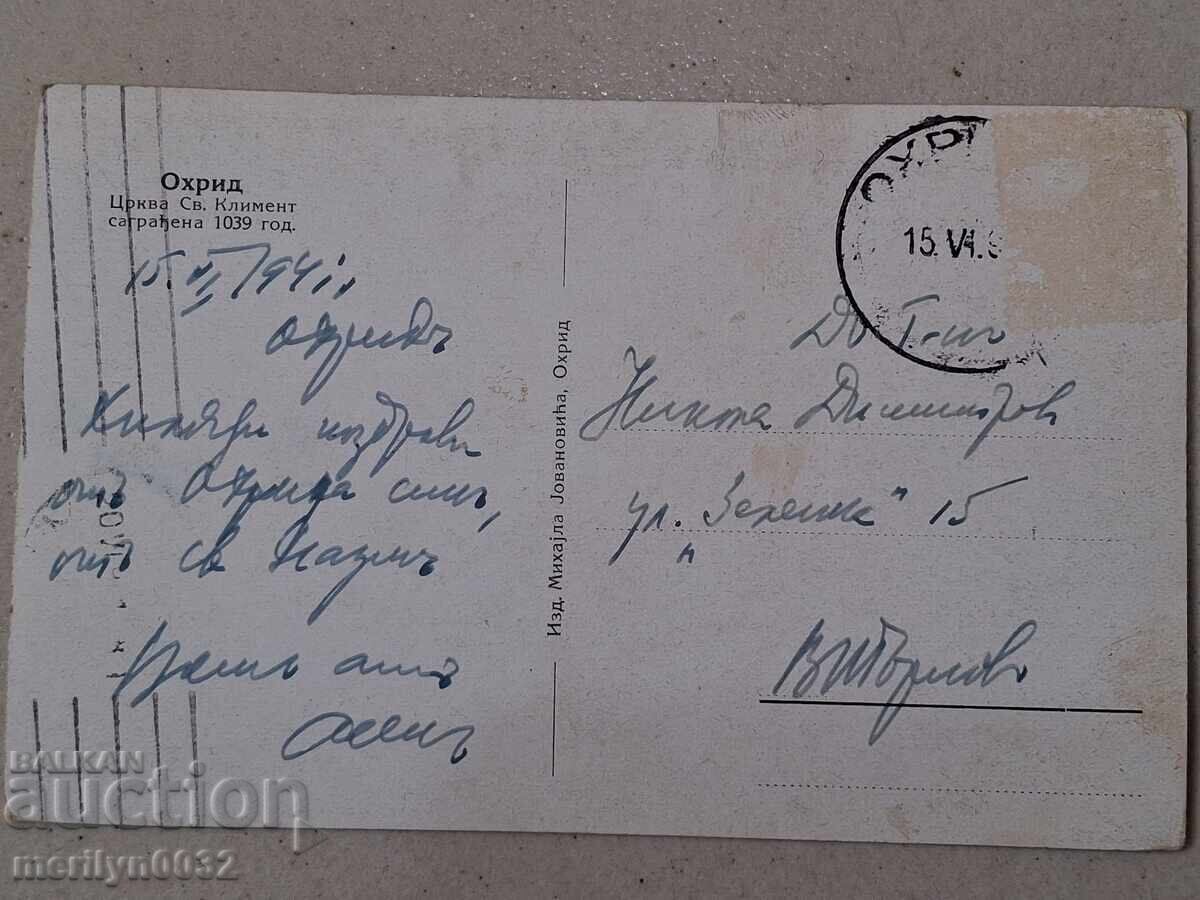 Охрид
Црква Св. Климент
саграђена 1039 год.
15.VI.1941г.
Охридъ
Хиляди поздрави
отъ Охрида
отъ св Наумъ
Вашъ
Изд. Михајла Јовановића, Охрид
ОХРИ
15.VI.
До Г-нъ
Никола Димитровъ
ул. "Зеленка" 15
В Търново
BALKAN
auction
merilyn0032